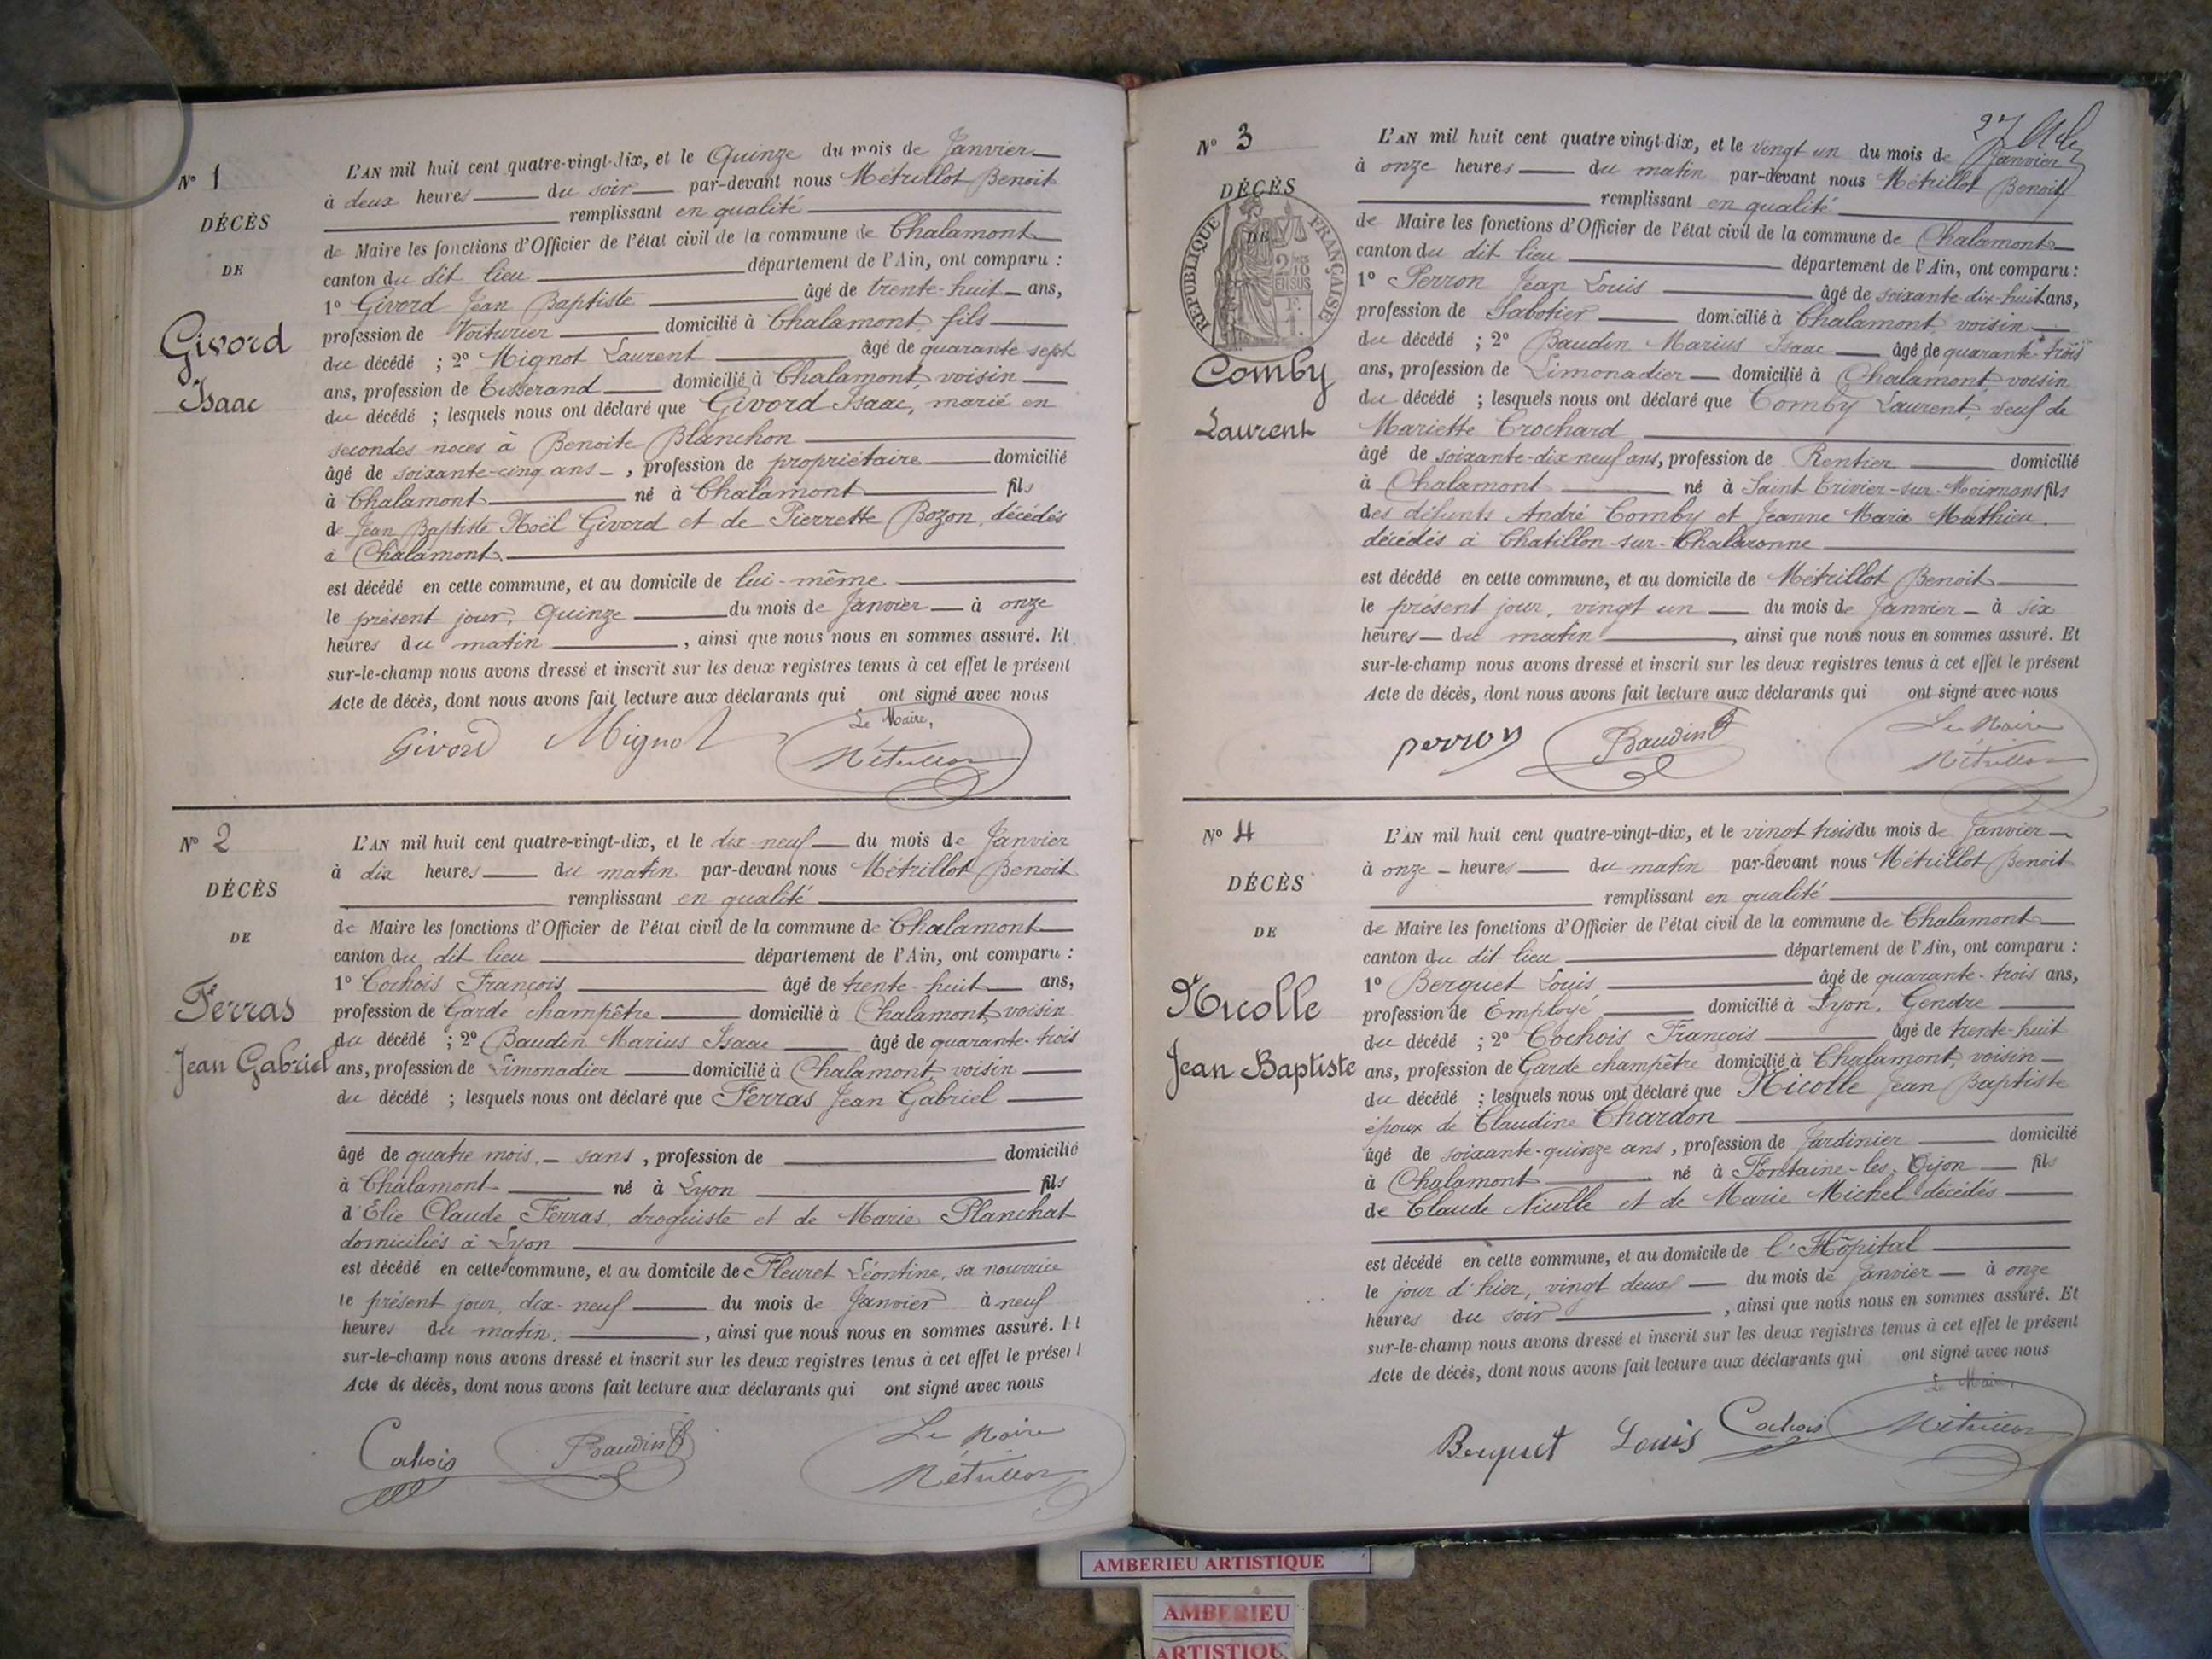 N° 1
DÉCÈS
DE
Givord
Isaac
L'AN mil huit cent quatre-vingt-dix, et le Quinze du mois de Janvier
à deux heures du soir par-devant nous Métrillot Benoit
remplissant en qualité
de Maire les fonctions d'Officier de l'état civil de la commune de Chalamont
canton du dit lieu département de l'Ain, ont comparu :
1° Givord Jean Baptiste âgé de trente-huit ans,
profession de Voiturier domicilié à Chalamont, fils
du décédé ; 2° Mignot Laurent âgé de quarante sept
ans, profession de Tisserand domicilié à Chalamont, voisin
du décédé ; lesquels nous ont déclaré que Givord Isaac, marié en
secondes noces à Benoite Blanchon
âgé de soixante-cinq ans, profession de propriétaire domicilié
à Chalamont né à Chalamont fils
de Jean Baptiste Noël Givord et de Pierrette Bozon, décédés
à Chalamont.
est décédé en cette commune, et au domicile de lui-même
le présent jour, Quinze du mois de Janvier à onze
heures du matin, ainsi que nous nous en sommes assuré. Et
sur-le-champ nous avons dressé et inscrit sur les deux registres tenus à cet effet le présent
Acte de décès, dont nous avons fait lecture aux déclarants qui ont signé avec nous
Le Maire,
Givord Mignot Métrillot
N° 2
DÉCÈS
DE
Ferras
Jean Gabriel
L'AN mil huit cent quatre-vingt-dix, et le dix-neuf du mois de Janvier
à dix heures du matin par-devant nous Métrillot Benoit
remplissant en qualité
de Maire les fonctions d'Officier de l'état civil de la commune de Chalamont
canton du dit lieu département de l'Ain, ont comparu :
1° Cochois François âgé de trente-huit ans,
profession de Garde champêtre domicilié à Chalamont, voisin
du décédé ; 2° Baudin Marius Isaac âgé de quarante-trois
ans, profession de Limonadier domicilié à Chalamont, voisin
du décédé ; lesquels nous ont déclaré que Ferras Jean Gabriel
âgé de quatre mois, sans, profession de domicilié
à Chalamont né à Lyon fils
d'Elie Claude Ferras, droguiste et de Marie Planchat
domiciliés à Lyon
est décédé en cette commune, et au domicile de Fleuret Léontine, sa nourrice
le présent jour, dix-neuf du mois de Janvier à neuf
heures du matin, ainsi que nous nous en sommes assuré. Et
sur-le-champ nous avons dressé et inscrit sur les deux registres tenus à cet effet le présent
Acte de décès, dont nous avons fait lecture aux déclarants qui ont signé avec nous
Cochois Baudin Le Maire
Métrillot
N° 3
DÉCÈS
DE
RÉPUBLIQUE FRANÇAISE
2/10
EN SUS
Comby
Laurent
L'AN mil huit cent quatre vingt-dix, et le vingt un du mois de Janvier
à onze heures du matin par-devant nous Métrillot Benoit
remplissant en qualité
de Maire les fonctions d'Officier de l'état civil de la commune de Chalamont
canton du dit lieu département de l'Ain, ont comparu :
1° Perron Jean Louis âgé de soixante-dix-huit ans,
profession de Sabotier domicilié à Chalamont, voisin
du décédé ; 2° Baudin Marius Isaac âgé de quarante-trois
ans, profession de Limonadier domicilié à Chalamont, voisin
du décédé ; lesquels nous ont déclaré que Comby Laurent, veuf de
Mariette Crochard
âgé de soixante-dix neuf ans, profession de Rentier domicilié
à Chalamont né à Saint Trivier-sur-Moignans fils
des défunts André Comby et Jeanne Marie Mathieu.
décédés à Chatillon-sur-Chalaronne
est décédé en cette commune, et au domicile de Métrillot Benoit
le présent jour, vingt un du mois de Janvier à six
heures du matin, ainsi que nous nous en sommes assuré. Et
sur-le-champ nous avons dressé et inscrit sur les deux registres tenus à cet effet le présent
Acte de décès, dont nous avons fait lecture aux déclarants qui ont signé avec nous
perron Baudin Le Maire
Métrillot
N° 4
DÉCÈS
DE
Nicolle
Jean Baptiste
L'AN mil huit cent quatre-vingt-dix, et le vingt trois du mois de Janvier
à onze heures du matin par-devant nous Métrillot Benoit
remplissant en qualité
de Maire les fonctions d'Officier de l'état civil de la commune de Chalamont
canton du dit lieu département de l'Ain, ont comparu :
1° Berquet Louis âgé de quarante-trois ans,
profession de Employé domicilié à Lyon, Gendre
du décédé ; 2° Cochois François âgé de trente-huit
ans, profession de Garde champêtre domicilié à Chalamont, voisin
du décédé ; lesquels nous ont déclaré que Nicolle Jean Baptiste
époux de Claudine Chardon
âgé de soixante-quinze ans, profession de Jardinier domicilié
à Chalamont né à Fontaine-les-Dijon fils
de Claude Nicolle et de Marie Michel décédés
est décédé en cette commune, et au domicile de l'Hôpital
le jour d'hier, vingt deux du mois de Janvier à onze
heures du soir, ainsi que nous nous en sommes assuré. Et
sur-le-champ nous avons dressé et inscrit sur les deux registres tenus à cet effet le présent
Acte de décès, dont nous avons fait lecture aux déclarants qui ont signé avec nous
Le Maire,
Berquet Louis Cochois Métrillot
AMBERIEU ARTISTIQUE
AMBERIEU
ARTISTIQUE